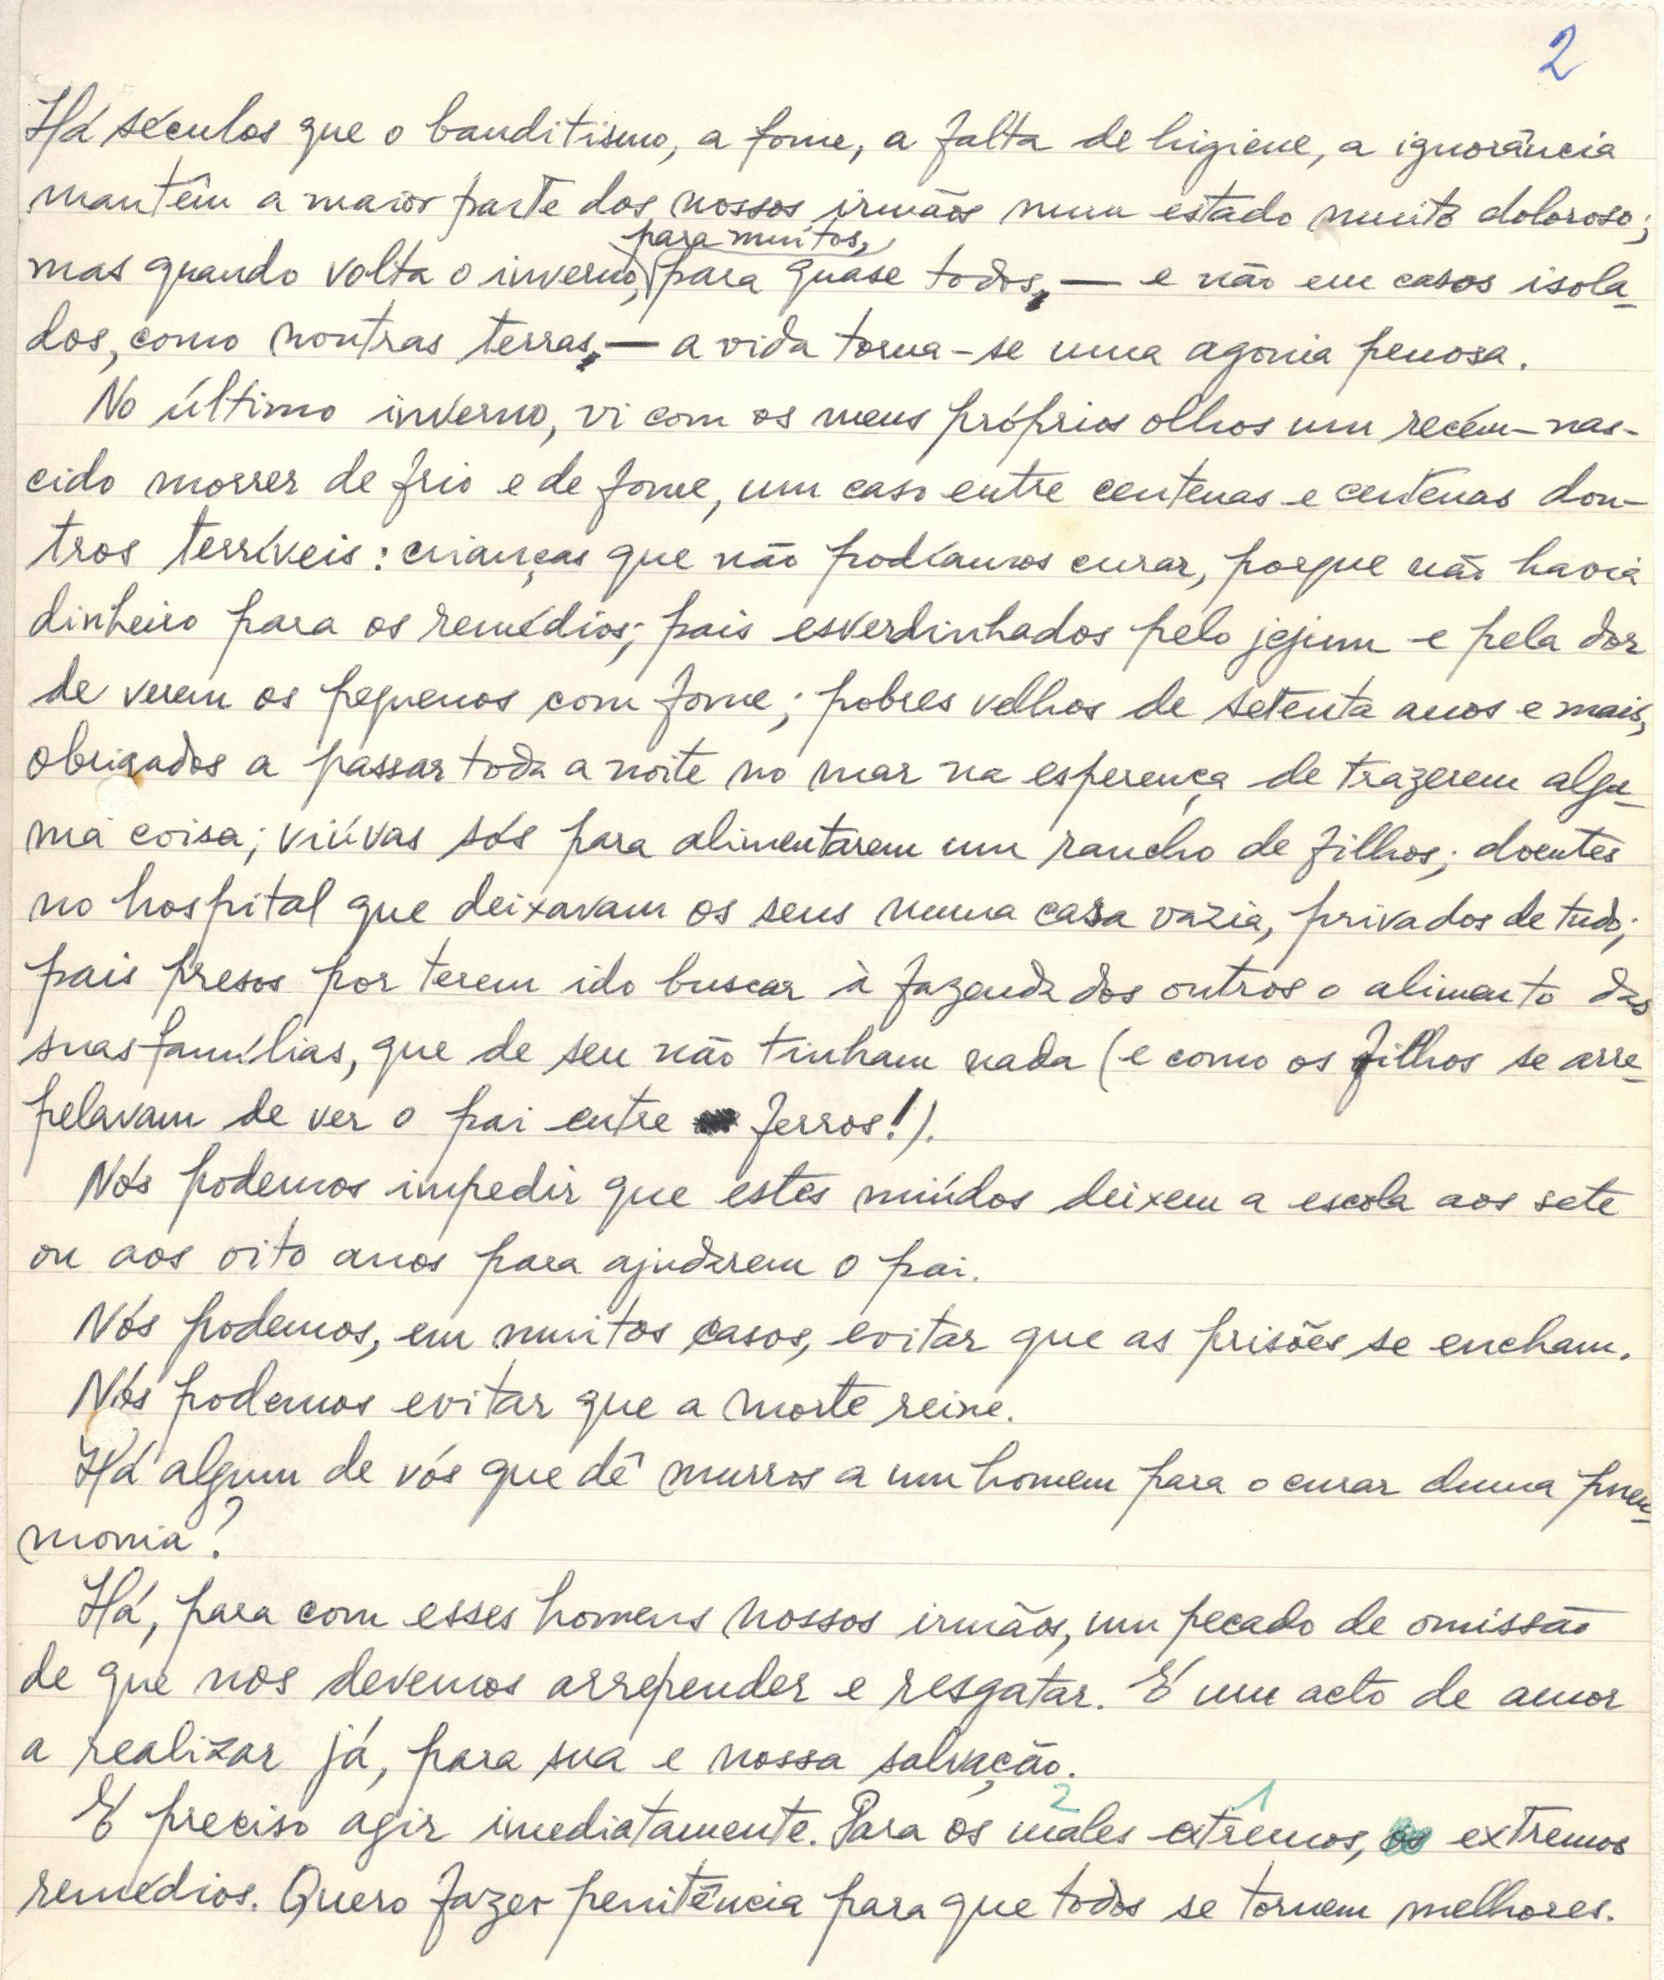 2
Há séculos que o banditismo, a fome, a falta de higiene, a ignorância
mantêm a maior parte dos nossos irmãos num estado muito doloroso;
para muitos,
mas quando volta o inverno, para quase todos, — e não em casos isola-
dos, como noutras terras, — a vida torna-se uma agonia penosa.
No último inverno, vi com os meus próprios olhos um recém-nas-
cido morrer de frio e de fome, um caso entre centenas e centenas dou-
tros terríveis: crianças que não podíamos curar, porque não havia
dinheiro para os remédios; pais esverdinhados pelo jejum e pela dor
de verem os pequenos com fome; pobres velhos de setenta anos e mais,
obrigados a passar toda a noite no mar na esperença de trazerem algu-
ma coisa; viúvas sós para alimentarem um rancho de filhos; doentes
no hospital que deixavam os seus numa casa vazia, privados de tudo;
pais presos por terem ido buscar à fazenda dos outros o alimento das
suas famílias, que de seu não tinham nada (e como os filhos se arre-
pelavam de ver o pai entre ferros!).
Nós podemos impedir que estes miúdos deixem a escola aos sete
ou aos oito anos para ajudarem o pai.
Nós podemos, em muitos casos, evitar que as prisões se encham.
Nós podemos evitar que a morte reine.
Há algum de vós que dê murros a um homem para o curar duma pneu-
monia?
Há, para com esses homens nossos irmãos, um pecado de omissão
de que nos devemos arrepender e resgatar. É um acto de amor
a realizar já, para sua e nossa salvação.
2 1
É preciso agir imediatamente. Para os males extremos, os extremos
remédios. Quero fazer penitência para que todos se tornem melhores.